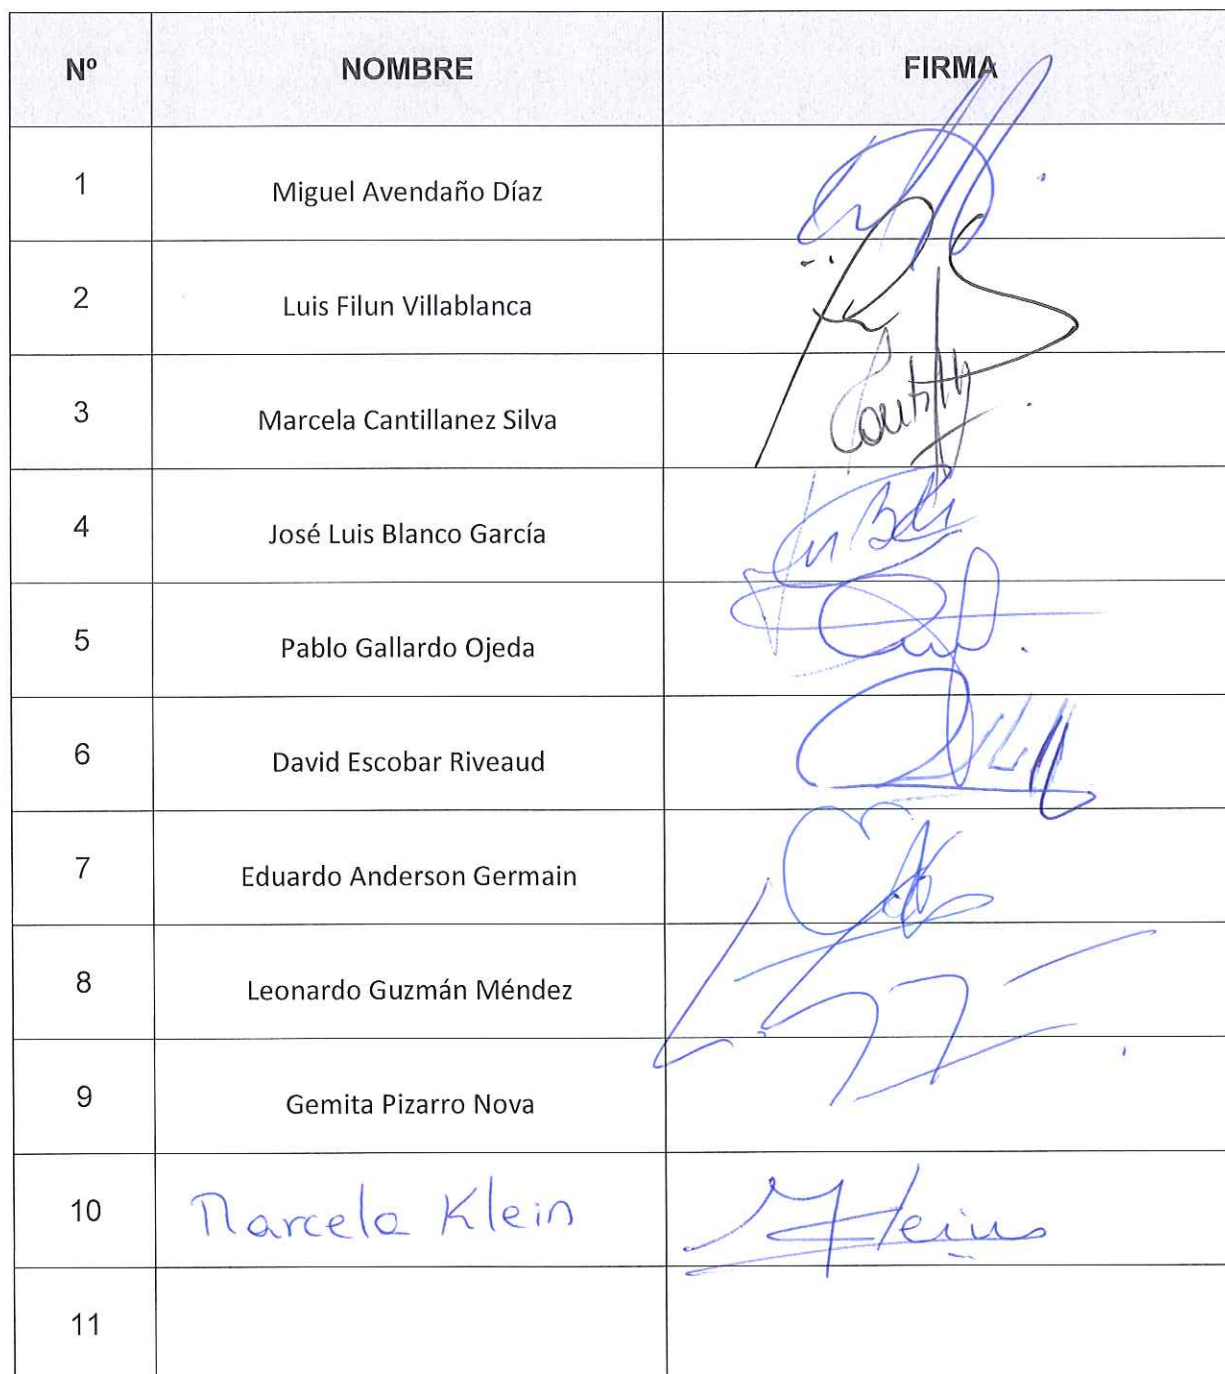 Nº NOMBRE FIRMA
1 Miguel Avendaño Díaz
2 Luis Filun Villablanca
3 Marcela Cantillanez Silva
4 José Luis Blanco García
5 Pablo Gallardo Ojeda
6 David Escobar Riveaud
7 Eduardo Anderson Germain
8 Leonardo Guzmán Méndez
9 Gemita Pizarro Nova
10 Marcela Klein
11